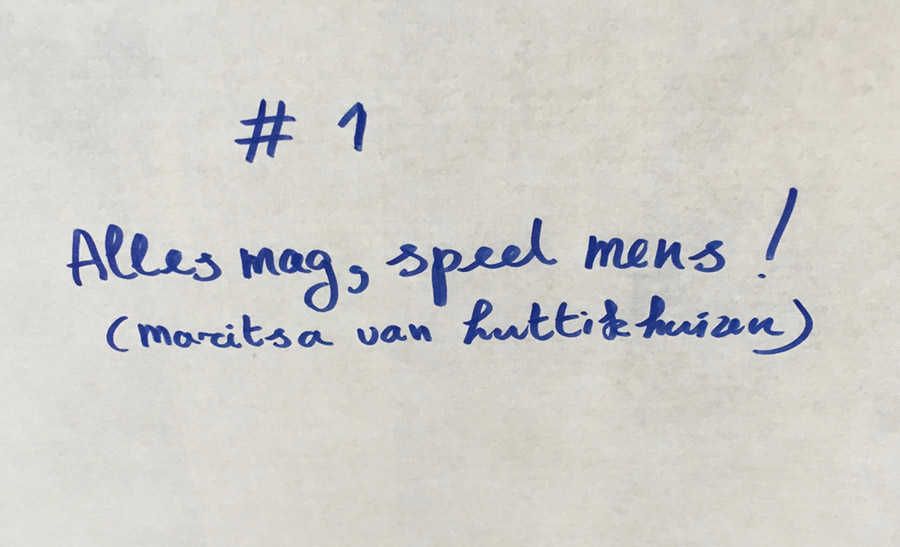 # 1
Alles mag, speel mens!
(maritsa van huttikhuizen)